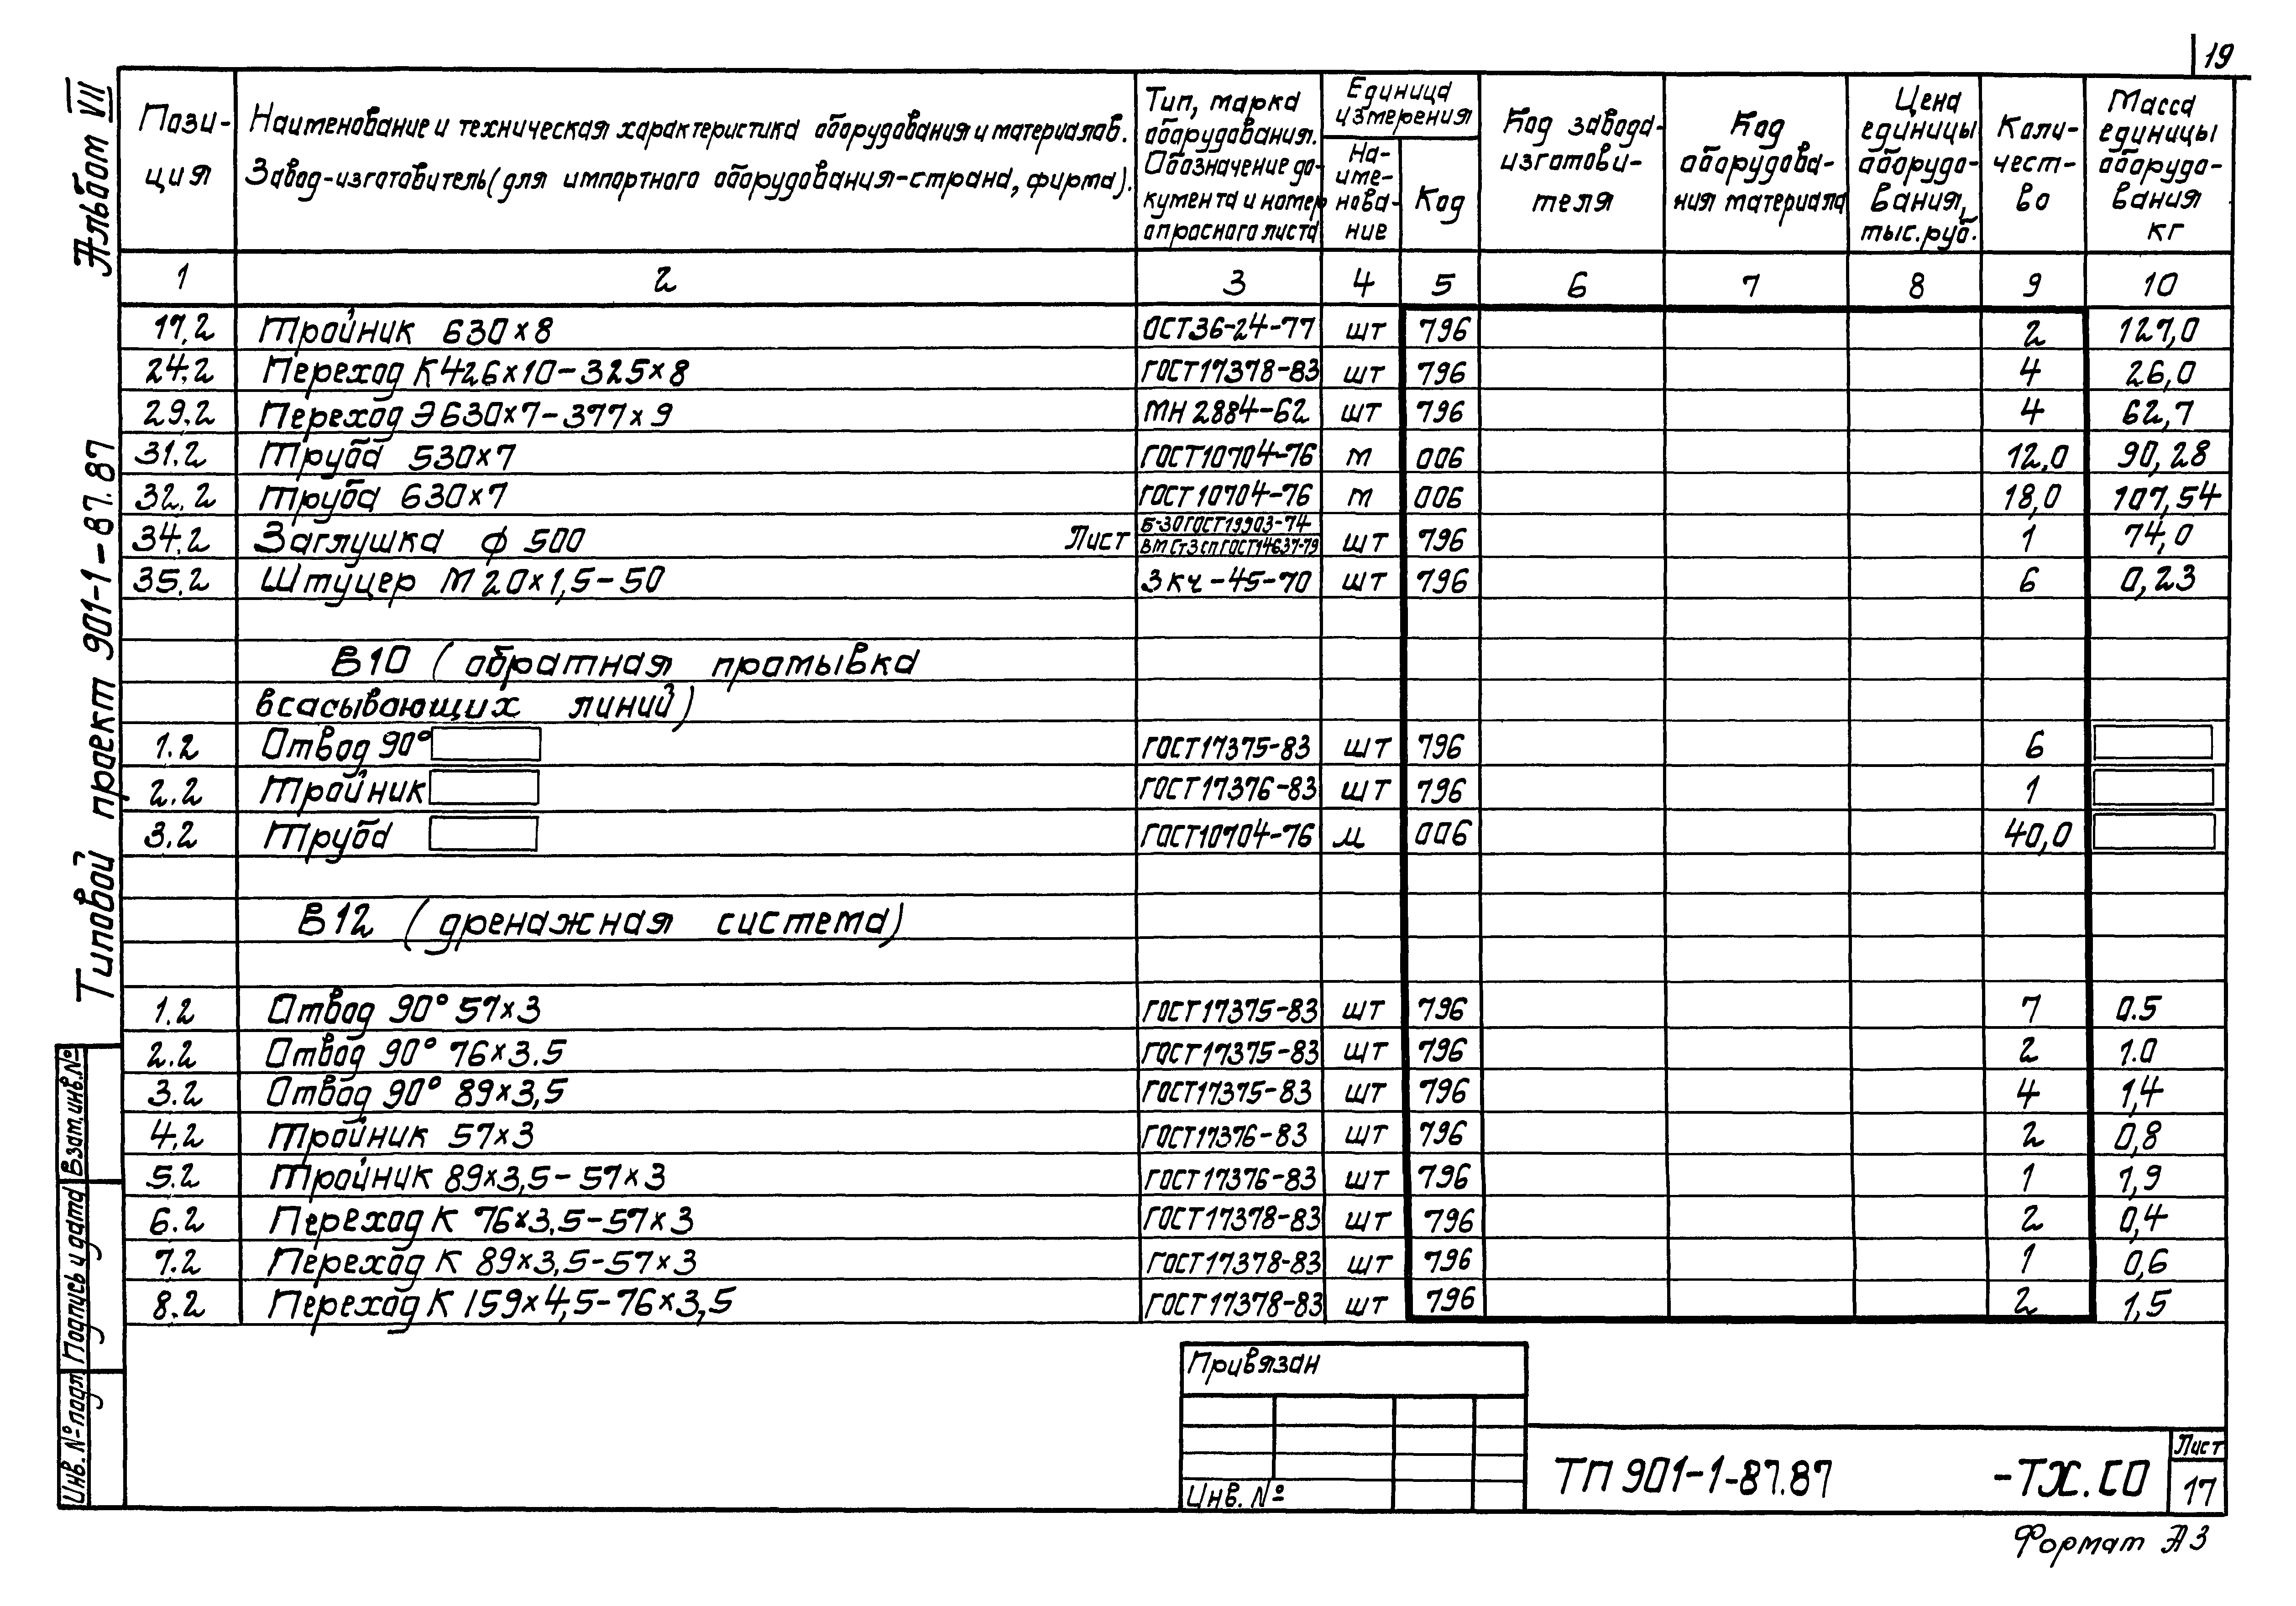 19
Альбом VII
Типовой проект 901-1-87.87
Взам.инв.№
Подпись и дата
Инв. № подл
Пози-
ция
Наименование и техническая характеристика оборудования и материалов.
Завод-изготовитель (для импортного оборудования-страна, фирма).
Тип, марка
оборудования.
Обозначение до-
кумента и номер
опросного листа
Единица
измерения
На-
име-
нова-
ние
Код
Код завода-
изготови-
теля
Код
оборудова-
ния материала
Цена
единицы
оборудо-
вания,
тыс.руб.
Коли-
чест-
во
Масса
единицы
оборудо-
вания
кг
1 2 3 4 5 6 7 8 9 10
17.2 Тройник 630×8 ОСТ36-24-77 шт 796 2 127,0
24.2 Переход К426×10-325×8 ГОСТ17378-83 шт 796 4 26,0
29.2 Переход Э630×7-377×9 МН 2884-62 шт 796 4 62,7
31.2 Труба 530×7 ГОСТ10704-76 м 006 12,0 90,28
32.2 Труба 630×7 ГОСТ 10704-76 м 006 18,0 107,54
34.2 Заглушка ф 500 Лист Б-30ГОСТ19903-74 ВМСт3спГОСТ14637-79 шт 796 1 74,0
35.2 Штуцер М20×1,5-50 3кч-45-70 шт 796 6 0,23
В10 (обратная промывка
всасывающих линий)
1.2 Отвод 90° ГОСТ17375-83 шт 796 6
2.2 Тройник ГОСТ17376-83 шт 796 1
3.2 Труба ГОСТ10704-76 м 006 40,0
В12 (дренажная система)
1.2 Отвод 90° 57×3 ГОСТ17375-83 шт 796 7 0.5
2.2 Отвод 90° 76×3.5 ГОСТ17375-83 шт 796 2 1.0
3.2 Отвод 90° 89×3,5 ГОСТ17375-83 шт 796 4 1,4
4.2 Тройник 57×3 ГОСТ17376-83 шт 796 2 0,8
5.2 Тройник 89×3,5-57×3 ГОСТ17376-83 шт 796 1 1,9
6.2 Переход К 76×3,5-57×3 ГОСТ17378-83 шт 796 2 0,4
7.2 Переход К 89×3,5-57×3 ГОСТ17378-83 шт 796 1 0,6
8.2 Переход К 159×4,5-76×3,5 ГОСТ17378-83 шт 796 2 1,5
Привязан
Инв. №
ТП 901-1-87.87 -ТХ.СО
Лист
17
Формат А3